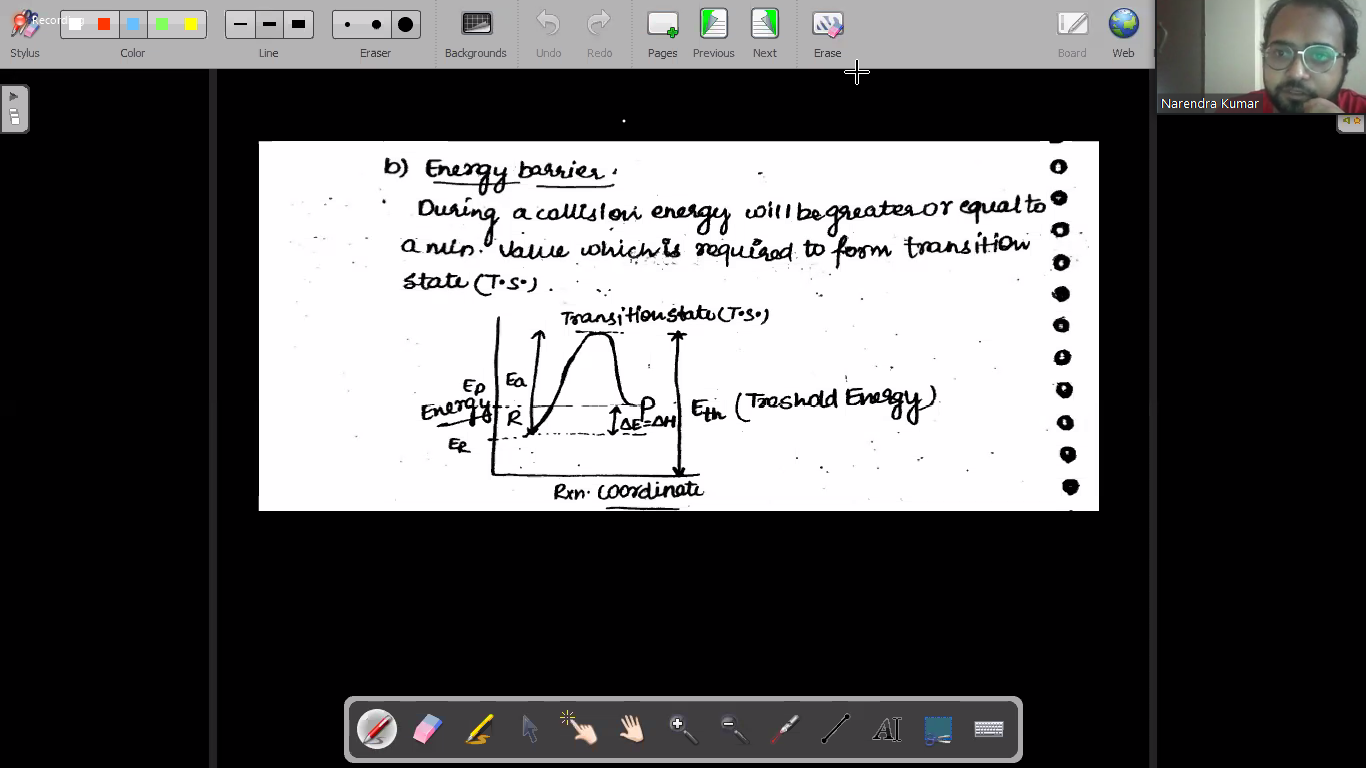 Recording
Stylus
Color
Line
Eraser
Backgrounds
Undo
Redo
Pages
Previous
Next
Erase
Board
Web
Narendra Kumar
b) Energy barrier.
During a collision energy will be greater or equal to
a min. value which is required to form transition
state (T.S.).
Transition state (T.S.)
Ep
Ea
Energy
R
P
ΔE=ΔH
Eth (Treshold Energy)
ER
Rxn. coordinate